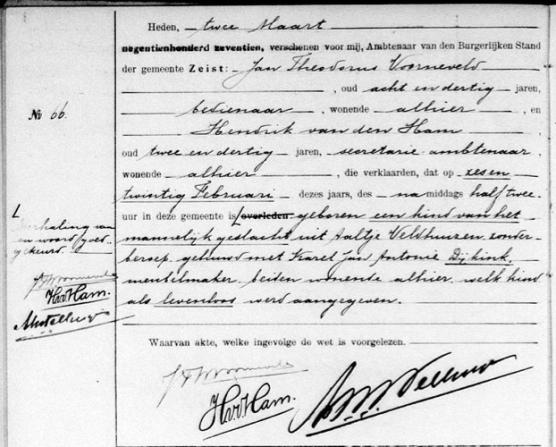 Heden, twee Maart
negentienhonderd zeventien, verschenen voor mij, Ambtenaar van den Burgerlijken Stand
der gemeente Zeist: Jan Theodorus Voorneveld
, oud acht en dertig jaren,
bedienaar, wonende alhier, en
Hendrik van den Ham
oud twee en dertig jaren, secretarie ambtenaar,
wonende alhier, die verklaarden, dat op zes en
twintig Februari dezes jaars, des namiddags half twee
uur in deze gemeente is overleden geboren een kind van het
mannelijk geslacht uit Aaltje Veldhuizen, zonder
beroep, gehuwd met Karel Jan Antonie Dijkink,
meubelmaker, beiden wonende alhier, welk kind
als levenloos werd aangegeven.
Waarvan akte, welke ingevolge de wet is voorgelezen.
H.v.d.Ham.
No 66.
van
een woord goed-
gekeurd.
H.v.d.Ham.